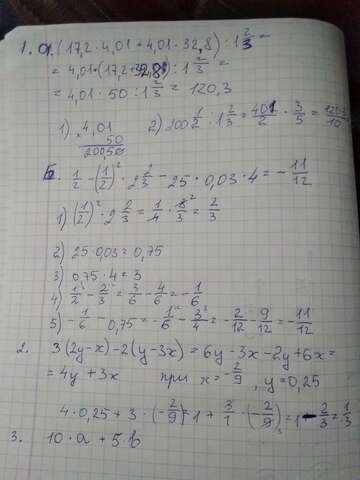 1. а. (17,2 · 4,01 + 4,01 · 32,8) : 1 2/3 =
= 4,01 · (17,2 + 32,8) : 1 2/3 =
= 4,01 · 50 : 1 2/3 = 120,3
1) × 4,01 2) 200 1/2 : 1 2/3 = 401/2 · 3/5 =
50
200,50
Б. 1/2 - (1/2)² · 2 2/3 - 25 · 0,03 · 4 = - 11/12
1) (1/2)² · 2 2/3 = 1/4 · 8/3 ² = 2/3
2) 25 · 0,03 = 0,75
3) 0,75 · 4 = 3
4) 1/2 - 2/3 = 3/6 - 4/6 = - 1/6
5) - 1/6 - 0,75 = - 1/6 - 3/4 = - 2/12 - 9/12 = - 11/12
2. 3(2y-x) - 2(y-3x) = 6y - 3x - 2y + 6x =
= 4y + 3x при x = - 2/9, y = 0,25
4 · 0,25 + 3 · (- 2/9) = 1 + 3/1 · (- 2/9) = 1 - 2/3 = 1/3
3. 10 · a + 5 · b